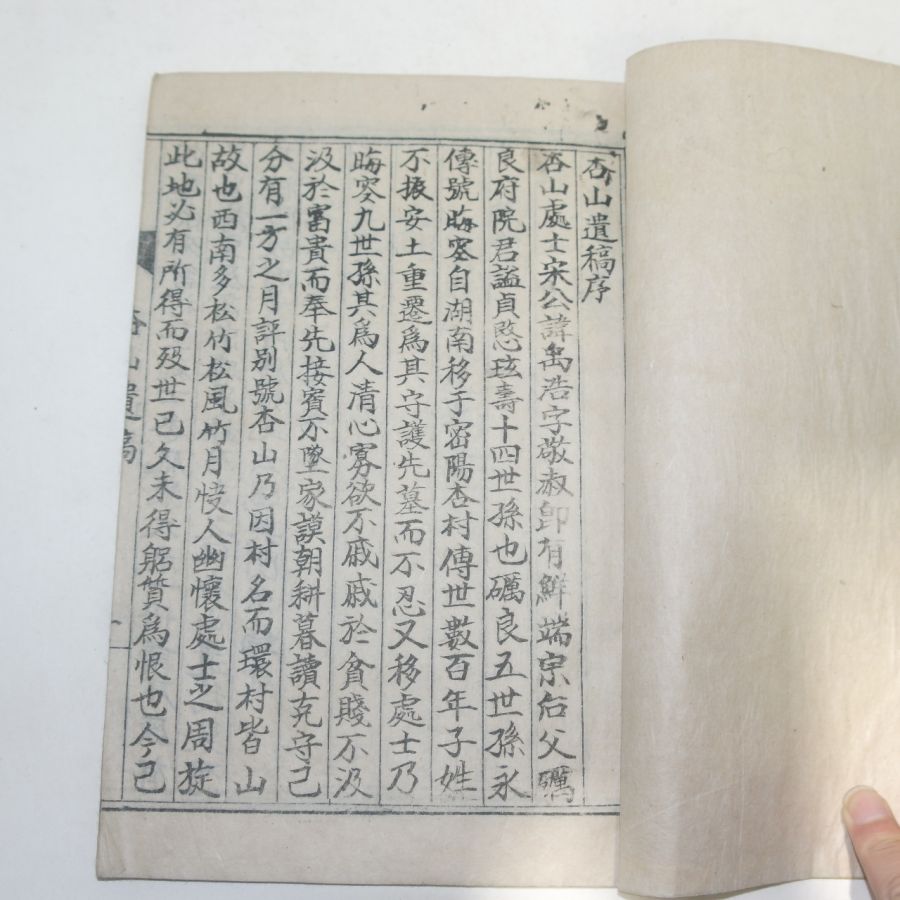 杏山遺稿序
杏山處士宋公諱禹浩字敬叔卽有鮮端宗后父礪
良府院君謚貞愍玹壽十四世孫也礪良五世孫永
傳號晦窓自湖南移于密陽杏村傳世數百年子姓
不振安土重遷爲其守護先墓而不忍又移處士乃
晦窓九世孫其爲人清心寡欲不戚戚於貧賤不汲
汲於富貴而奉先接賓不墜家謨朝耕暮讀克守己
分有一方之月評別號杏山乃因村名而環村皆山
故也西南多松竹松風竹月使人幽懷處士之周旋
此地必有所得而歿世已久未得躬質爲恨也今己
杏山遺稿
一